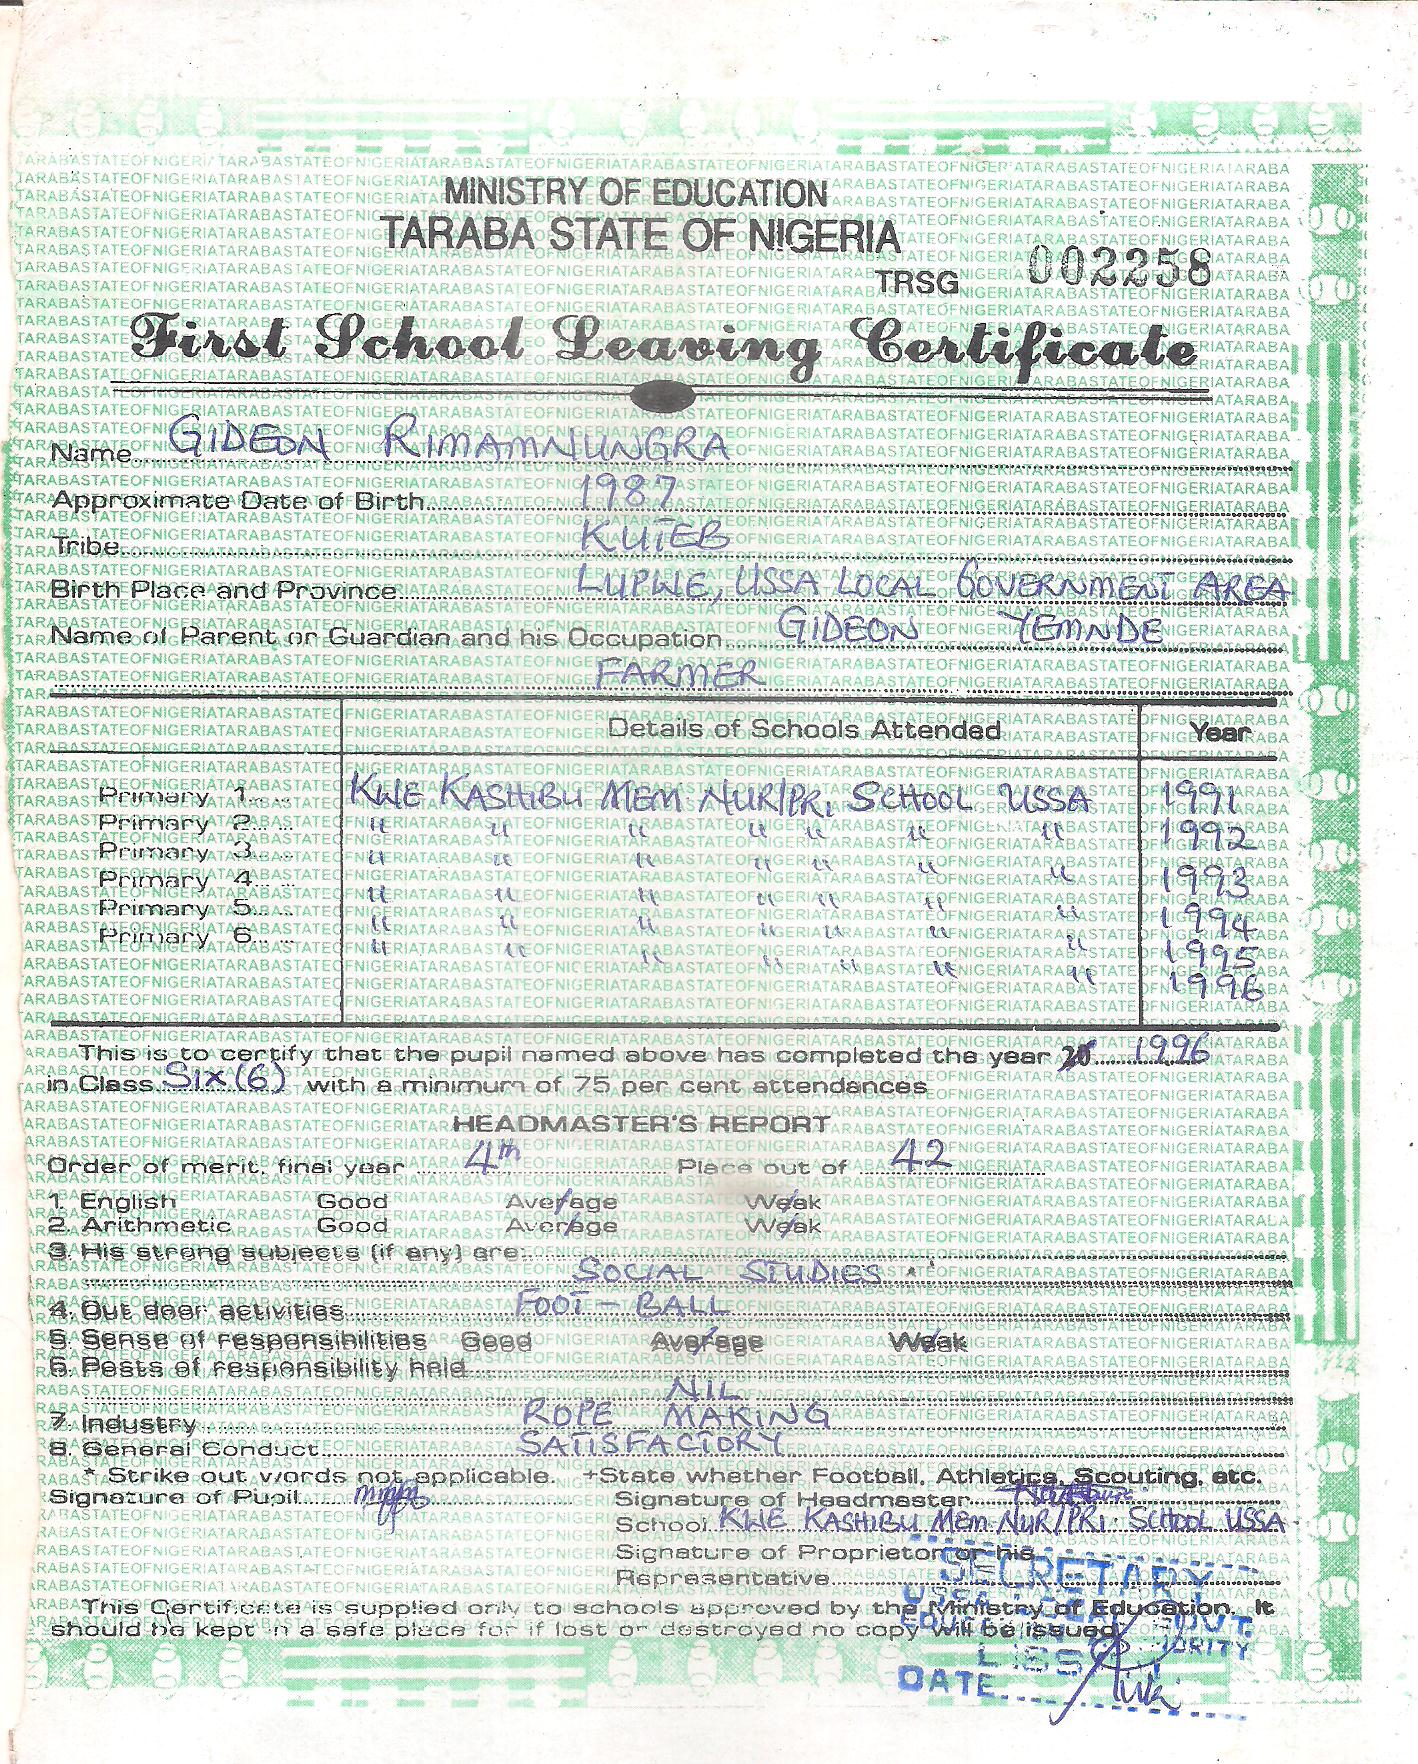 MINISTRY OF EDUCATION
TARABA STATE OF NIGERIA
TRSG 002258
First School Leaving Certificate
Name GIDEON RIMAMNUNGRA
Approximate Date of Birth 1987
Tribe KUTEB
Birth Place and Province LUPWE, USSA LOCAL GOVERNMENT AREA
Name of Parent or Guardian and his Occupation GIDEON YEMNDE
FARMER
Details of Schools Attended Year
Primary 1 KWE KASHIBU MEM NUR/PRI SCHOOL USSA 1991
Primary 2 " " " " " " " 1992
Primary 3 " " " " " " " 1993
Primary 4 " " " " " " " 1994
Primary 5 " " " " " " " 1995
Primary 6 " " " " " " " 1996
This is to certify that the pupil named above has completed the year 1996
in Class SIX (6) with a minimum of 75 per cent attendances
HEADMASTER'S REPORT
Order of merit, final year 4th Place out of 42
1. English Good Average Weak
2. Arithmetic Good Average Weak
3. His strong subjects (if any) are:
SOCIAL STUDIES
4. Out door activities FOOT-BALL
5. Sense of responsibilities Good Average Weak
6. Posts of responsibility held
NIL
7. Industry ROPE MAKING
8. General Conduct SATISFACTORY
* Strike out words not applicable. +State whether Football, Athletics, Scouting, etc.
Signature of Pupil
Signature of Headmaster
School KWE KASHIBU MEM NUR/PRI. SCHOOL USSA
Signature of Proprietor or his
Representative
SECRETARY
This Certificate is supplied only to schools approved by the Ministry of Education. It
should be kept in a safe place for if lost or destroyed no copy will be issued
DATE